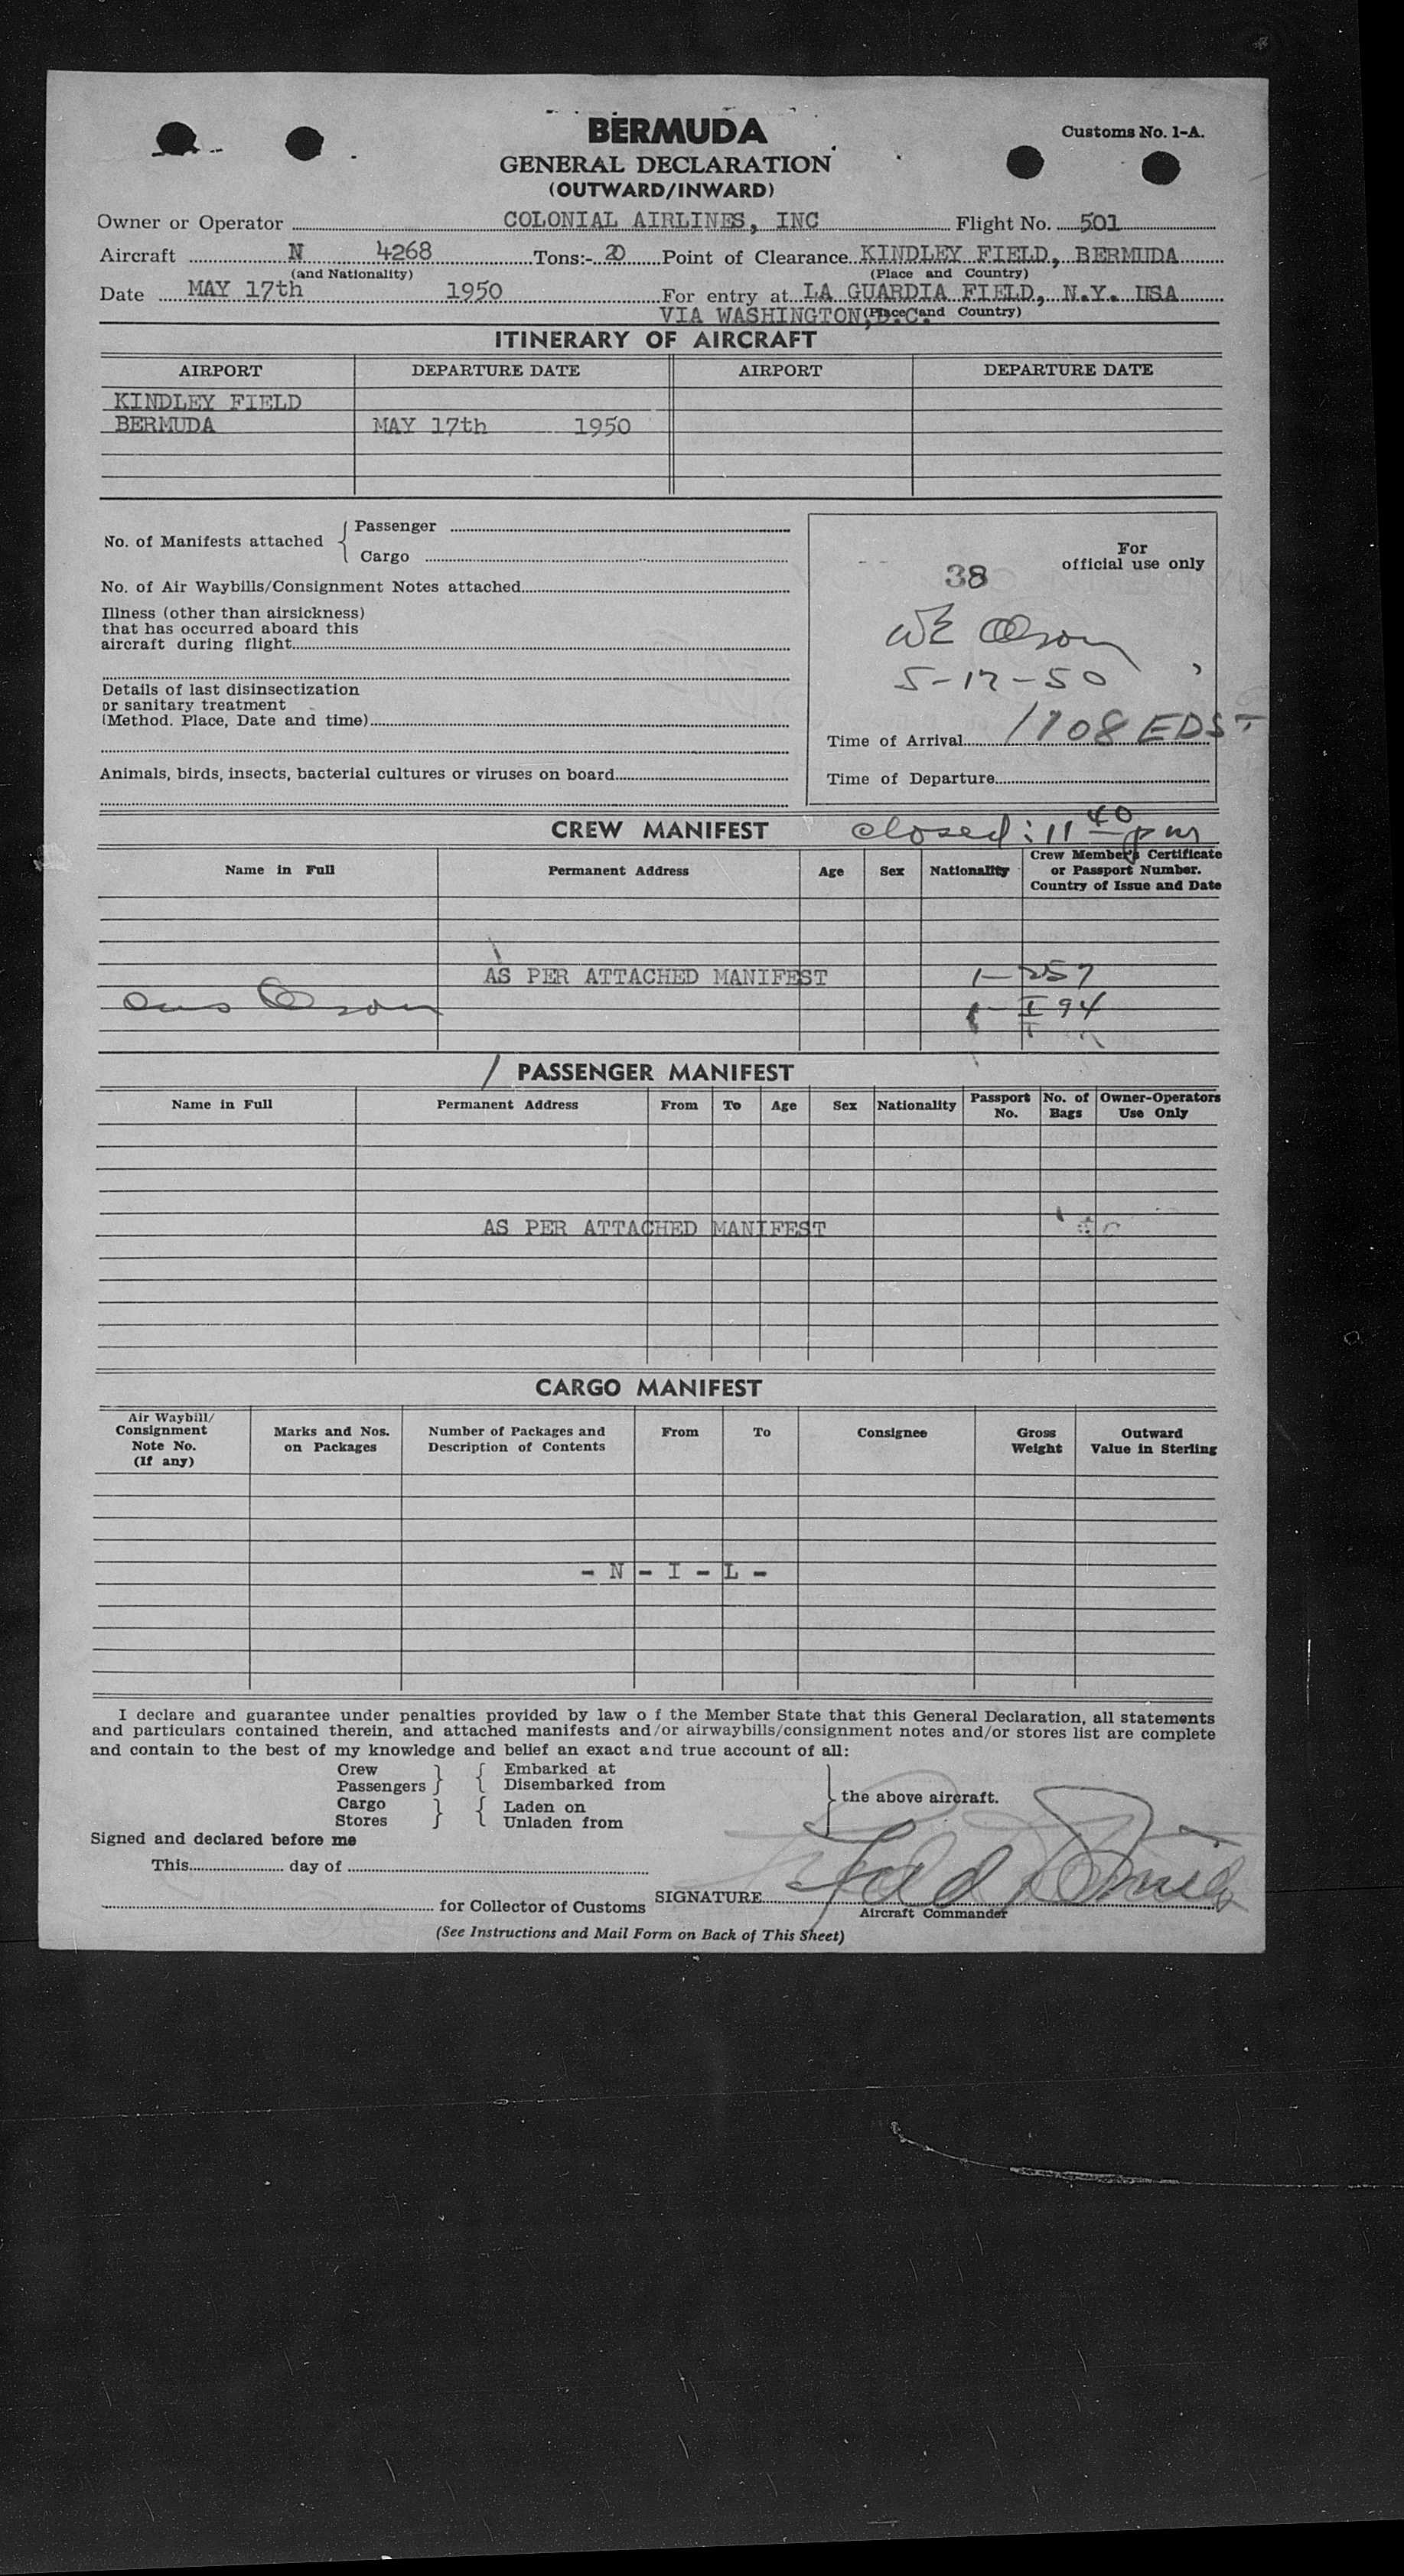 BERMUDA
Customs No. 1-A.
GENERAL DECLARATION
(OUTWARD/INWARD)
Owner or Operator COLONIAL AIRLINES, INC Flight No. 501
Aircraft N 4268 Tons:- 20 Point of Clearance KINDLEY FIELD, BERMUDA
(and Nationality) (Place and Country)
Date MAY 17th 1950 For entry at LA GUARDIA FIELD, N.Y. USA
VIA WASHINGTON, D.C. (Place and Country)
ITINERARY OF AIRCRAFT
AIRPORT DEPARTURE DATE AIRPORT DEPARTURE DATE
KINDLEY FIELD
BERMUDA MAY 17th 1950
No. of Manifests attached { Passenger
Cargo
No. of Air Waybills/Consignment Notes attached
Illness (other than airsickness)
that has occurred aboard this
aircraft during flight
Details of last disinsectization
or sanitary treatment
(Method. Place, Date and time)
Animals, birds, insects, bacterial cultures or viruses on board
For
official use only
38
WE Olson
5-17-50
Time of Arrival 1108 EDST
Time of Departure
CREW MANIFEST closed: 11 40 pm
Name in Full Permanent Address Age Sex Nationality Crew Member's Certificate
or Passport Number.
Country of Issue and Date
AS PER ATTACHED MANIFEST 1-257
Olson 1- I 94
PASSENGER MANIFEST
Name in Full Permanent Address From To Age Sex Nationality Passport No. No. of Bags Owner-Operators Use Only
AS PER ATTACHED MANIFEST
CARGO MANIFEST
Air Waybill/
Consignment
Note No.
(If any)
Marks and Nos.
on Packages
Number of Packages and
Description of Contents
From To Consignee
Gross
Weight
Outward
Value in Sterling
- N - I - L -
I declare and guarantee under penalties provided by law o f the Member State that this General Declaration, all statements
and particulars contained therein, and attached manifests and/or airwaybills/consignment notes and/or stores list are complete
and contain to the best of my knowledge and belief an exact and true account of all:
Crew } { Embarked at
Passengers } { Disembarked from
Cargo } { Laden on
Stores } { Unladen from
} the above aircraft.
Signed and declared before me
This day of
for Collector of Customs
SIGNATURE
Aircraft Commander
(See Instructions and Mail Form on Back of This Sheet)